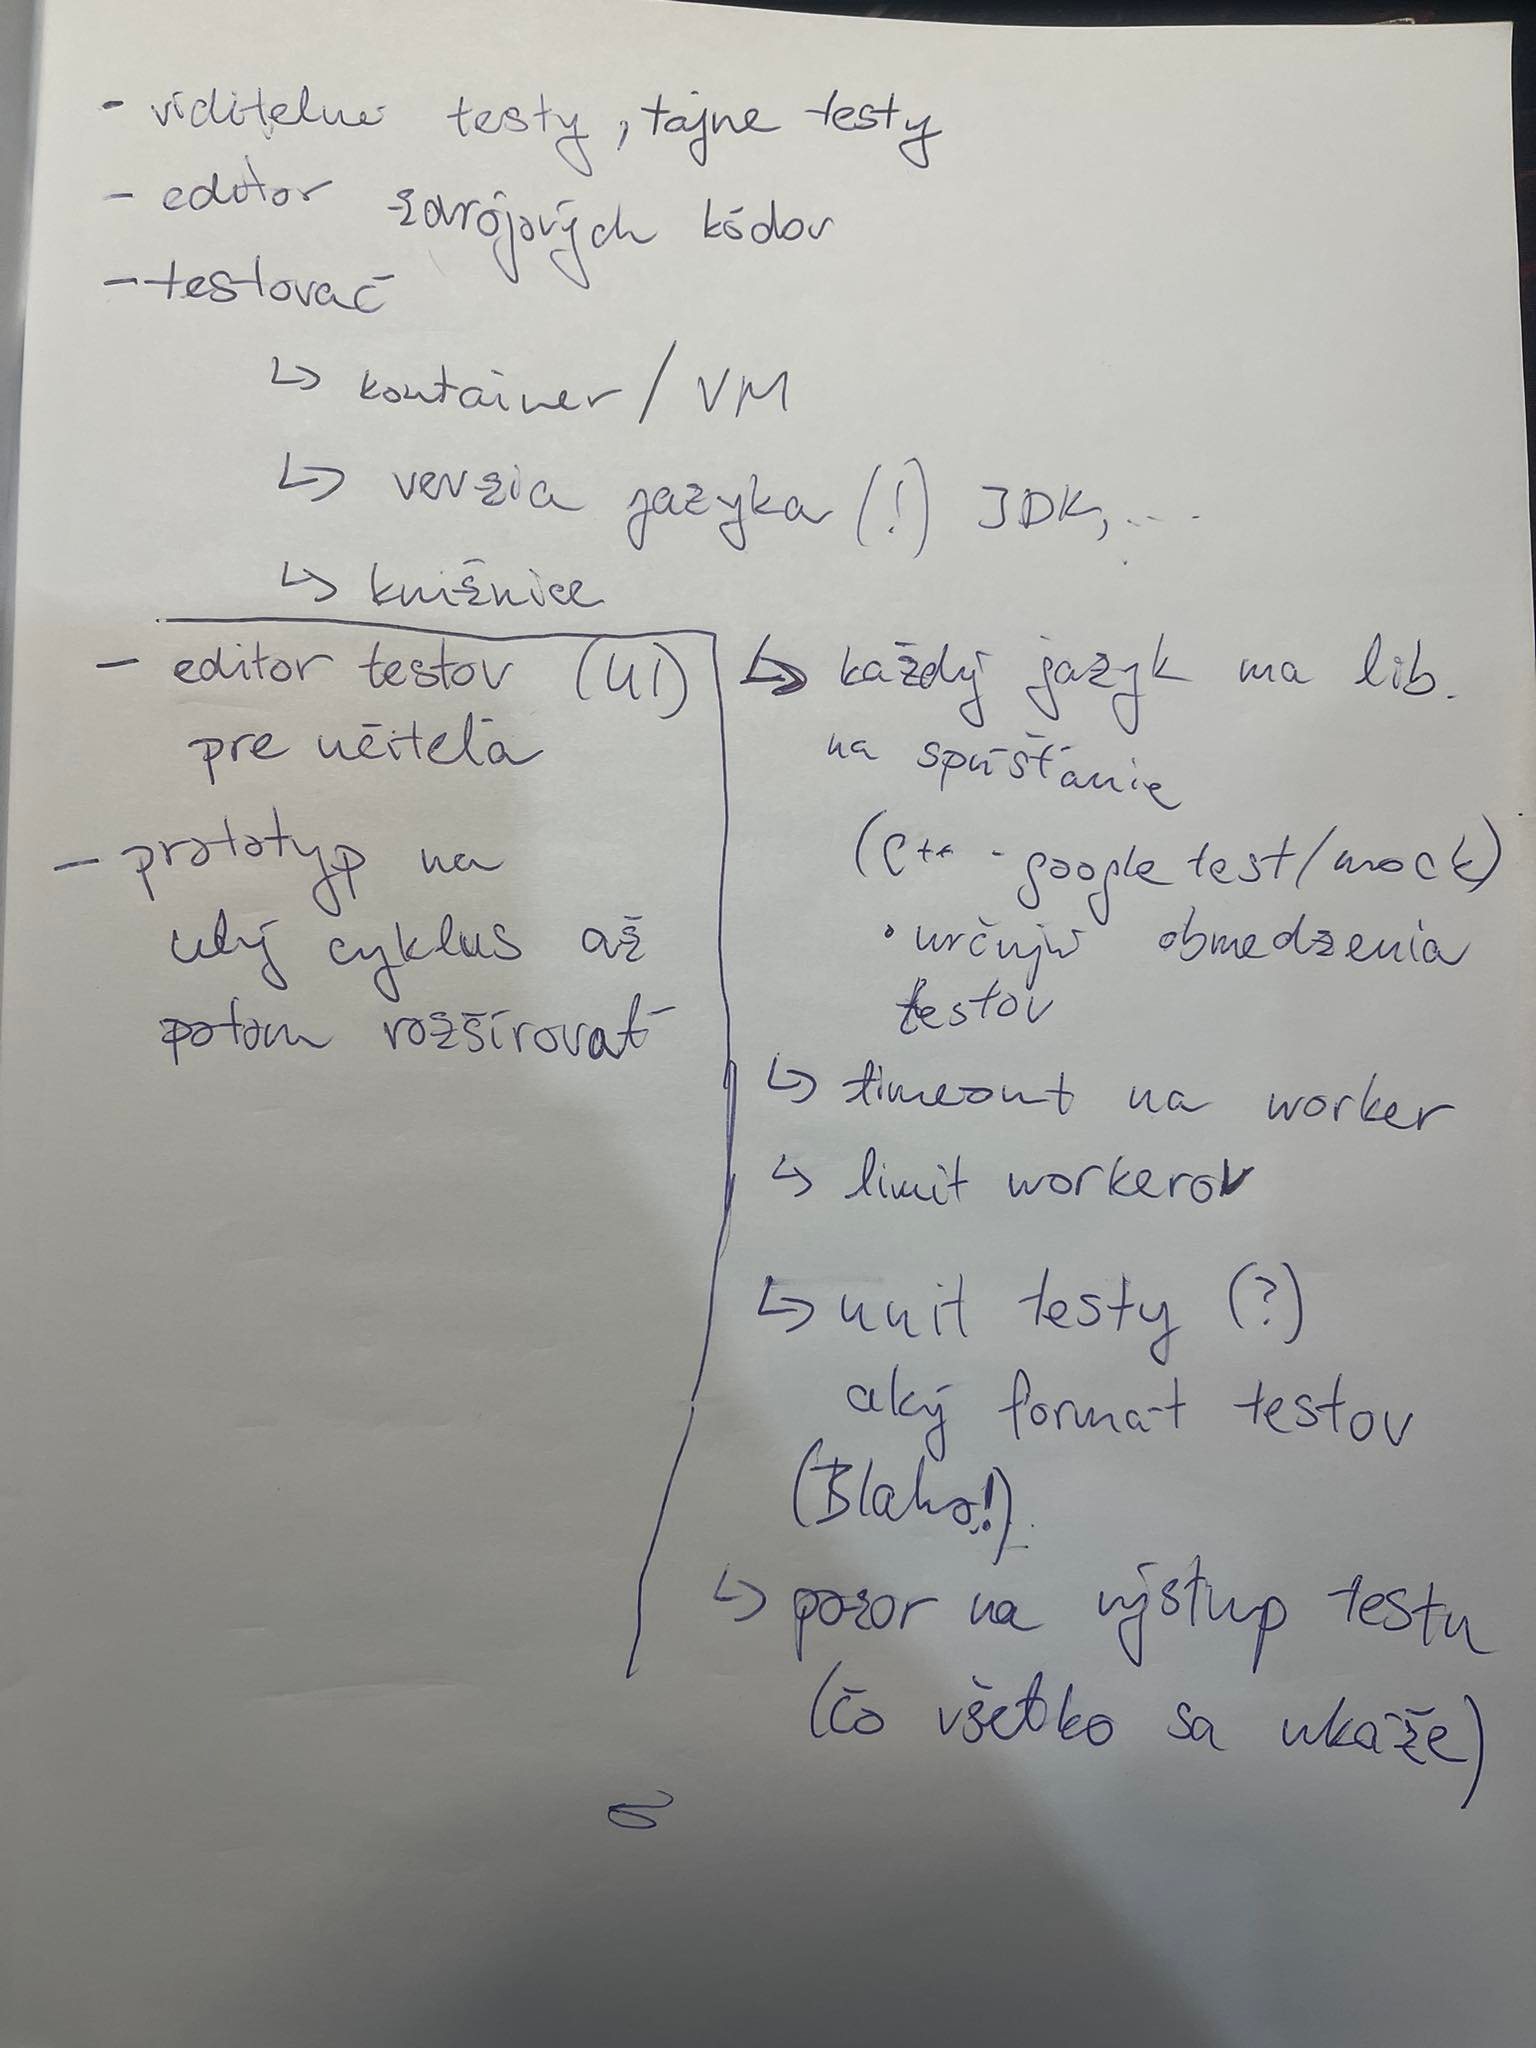 - viditeľné testy, tajne testy
- editor zdrojových kódov
- testovač
↳ kontainer / VM
↳ verzia jazyka (!) JDK, ...
↳ knižnice
- editor testov (UI)
pre učiteľa
- prototyp na
celý cyklus až
potom rozširovať
↳ každý jazyk ma lib.
na spúšťanie
(C++ - google test/mock)
• určujú obmedzenia
testov
↳ timeout na worker
↳ limit workerov
↳ unit testy (?)
aký format testov
(Blaho!)
↳ pozor na výstup testu
(čo všetko sa ukáže)